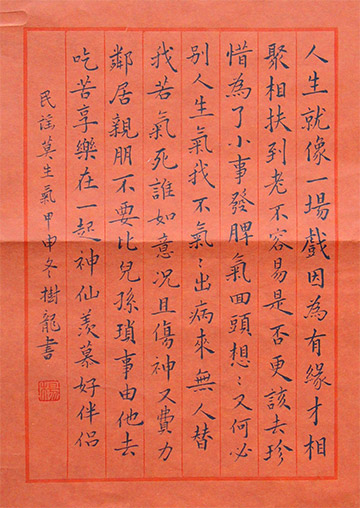 人生就像一場戲因為有緣才相
聚相扶到老不容易是否更該去珍
惜為了小事發脾氣回頭想〻又何必
别人生氣我不氣〻出病來無人替
我若氣死誰如意况且傷神又費力
鄰居親朋不要比兒孫瑣事由他去
吃苦享樂在一起神仙羨慕好伴侶
民謠莫生氣甲申冬樹龍書